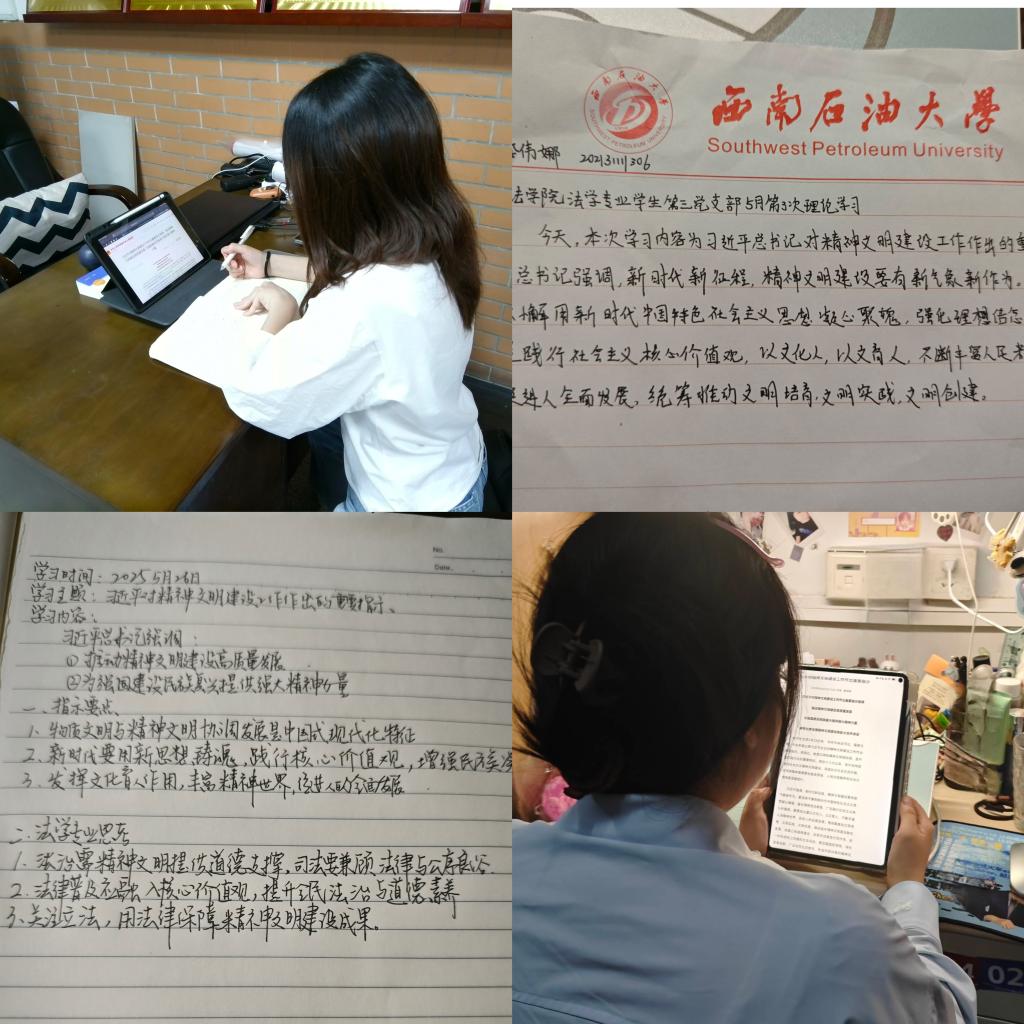 西南石油大學
Southwest Petroleum University
西南石油大学
SOUTHWEST PETROLEUM UNIVERSITY
伟娜 202131111306
法学院法学专业学生第三党支部5月第3次理论学习
今天,本次学习内容为习近平总书记对精神文明建设工作作出的重
总书记强调,新时代新征程,精神文明建设要有新气象新作为。
用新时代中国特色社会主义思想凝心聚魂,强化理想信念
践行社会主义核心价值观,以文化人,以文育人,不断丰富人民
进人全面发展,统筹推动文明培育,文明实践,文明创建。
No.
Date.
学习时间:2025 5月26日
学习主题:习近平对精神文明建设工作作出的重要指示、
学习内容:
习近平总书记强调:
①推动精神文明建设高质量发展
②为强国建设民族复兴提供强大精神力量
一、指示要点
1、物质文明与精神文明协调发展是中国式现代化特征
2、新时代要用新思想铸魂,践行核心价值观,增强民族
3、发挥文化育人作用,丰富精神世界,促进人的全面发展
二、法学专业思考
1、法治需精神文明提供道德支撑,司法要兼顾法律与公序良俗.
2、法律普及应融入核心价值观,提升公民法治与道德素养
3、关注立法,用法律保障精神文明建设成果。
02